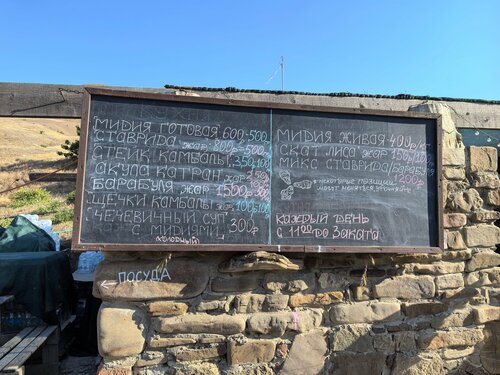 МИДИЯ ГОТОВАЯ 600-500г
СТАВРИДА жар. 800-500г
СТЕЙК КАМБАЛЫ 350-100г
АКУЛА КАТРАН жар
БАРАБУЛЯ жар 1500
ЩЕЧКИ КАМБАЛЫ 100-100г
ЧЕЧЕВИЧНЫЙ СУП
С МИДИЯМИ, 300₽
ХОЛОДНЫЙ
МИДИЯ ЖИВАЯ 400₽/кг
СКАТ ЛИСА жар 150/100г
МИКС СТАВРИДА/БАРАБУЛЯ
* НЕКОТОРЫЕ ПОЗИЦИИ
МОГУТ МЕНЯТЬСЯ
КАЖДЫЙ ДЕНЬ
С 11:00 ДО ЗАКАТА
← ПОСУДА